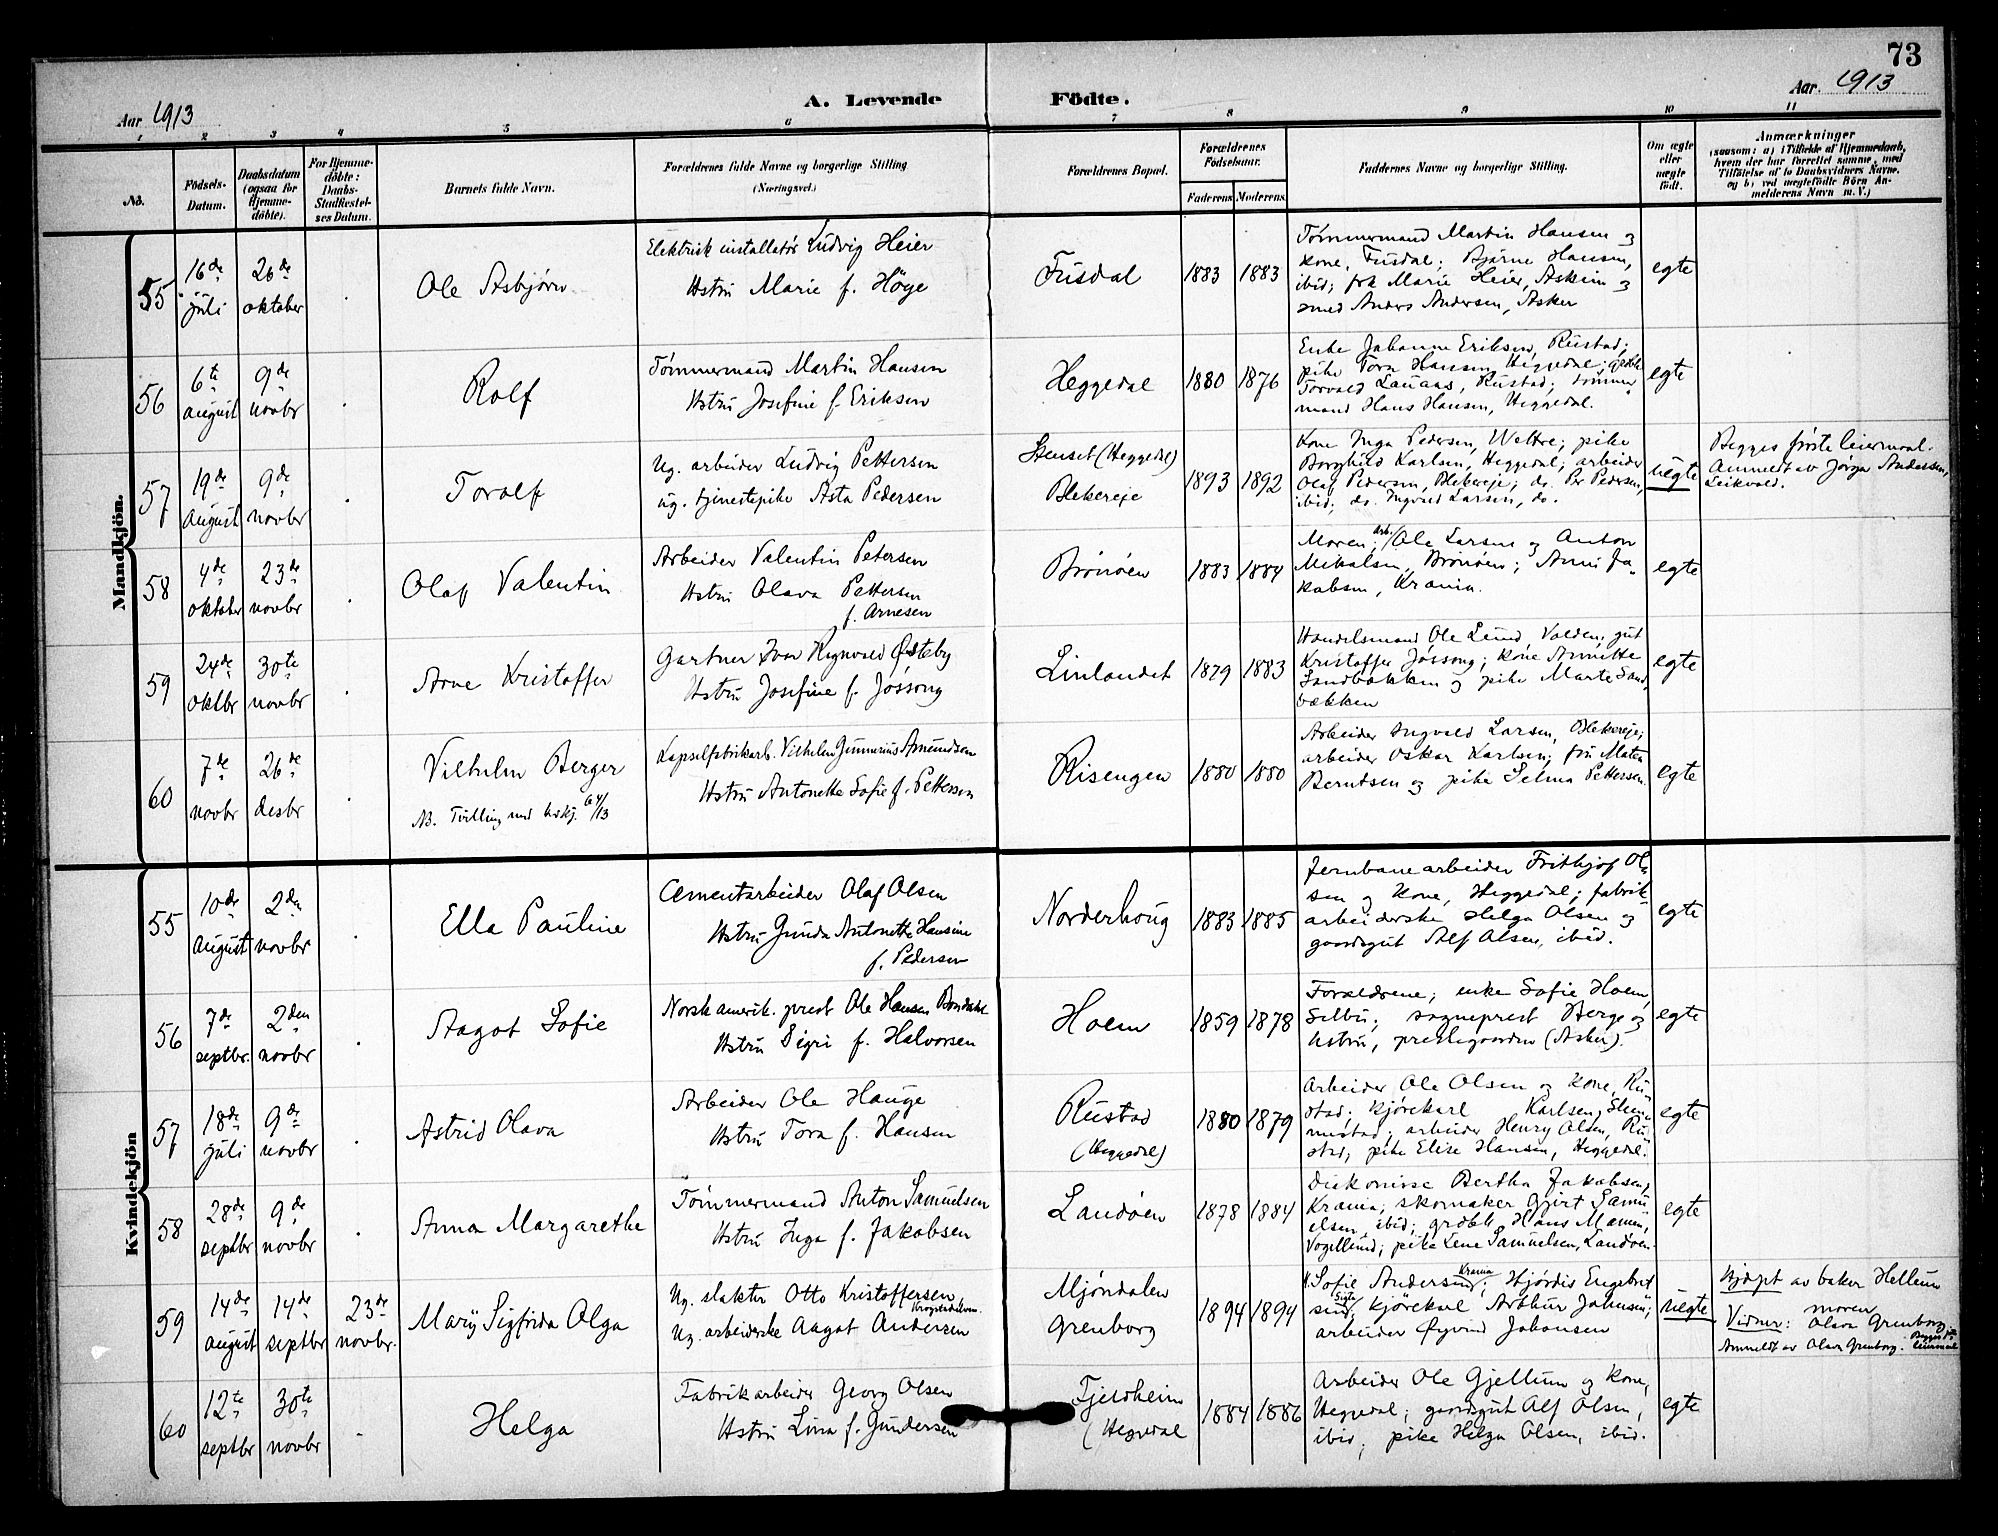 73
Aar 1913
A. Levende Födte.
Aar. 1913
1 2 3 4 5 6 7 8 9 10 11
No.
Födsels-Datum.
Daabsdatum (ogsaa for Hjemme-döbte).
For Hjemme-döbte: Daabs-Stadfæstel-ses Datum.
Barnets fulde Navn.
Forældrenes fulde Navne og borgerlige Stilling
(Næringsvei.)
Forældrenes Bopæl.
Forældrenes Födselsaar.
Faderens Moderens
Faddernes Navne og borgerlige Stilling.
Om ægte eller uægte födt.
Anmærkninger
(saasom: a) i Tilfælde af Hjemmedaab, hvem der har forrettet samme, med Tilföielse af to Daabsvidners Navne, og b) ved uægtefödte Börn An-melderens Navn m. V.)
Mandkjön.
55
16de juli
26de oktober
Ole Asbjørn
Elektrisk installatør Ludvig Heier
Hstru Marie f. Høge
Fusdal
1883 1883
Tømmermand Martin Hansen og
kone, Fusdal; Bjarne Hansen,
ibid; frk Marie Heier, Askim og
smed Anders Andersen, Asker
egte
56
6te august
9de novbr
Rolf
Tømmermand Martin Hansen
Hstru Josefine f. Eriksen
Heggedal
1880 1876
Enke Johanne Eriksen, Rustad;
pike Tora Hansen, Heggedal;
Torvald Lauaas, Rustad; tømmer-
mand Hans Hansen, Heggedal.
egte
57
19de august
9de novbr
Toralf
Ug. arbeider Ludvig Pettersen
ug. tjenestepike Asta Pedersen
Stenset (Heggedal)
Blekereje
1893 1892
Kone Inga Pedersen, Wettre; pike
Borghild Karlsen, Heggedal; arbeider
Olaf Pedersen, Blekereje; do. Per Pedersen,
ibid; do. Ingvald Larsen, do.
uegte
Begges første leiermaal.
Anmeldt av Jørgen Andersen,
Leikvold.
58
4de oktober
23de novbr
Olaf Valentin
Arbeider Valentin Petersen
Hstru Olava Pettersen
f. Arnesen
Brønøen
1883 1884
Moren; arb. Ole Larsen og Anton
Mikalsen, Brønøen; Anni Ja-
kobsen, Krania.
egte
59
24de oktbr
30te novbr
Arne Kristoffer
Gartner Ivar Ragnvald Østeby
Hstru Josefine f. Jøssong
Linlandet
1879 1883
Handelsmand Ole Lund, Valden; gut
Kristoffer Jøssong; kone Annette
Sandbakken og pike Marte Sand-
bækken
egte
60
7de novbr
26de desbr
Vilhelm Berger
NB. Tvilling med kvkj. 64/13
Kapselfabrikarb. Vilhelm Gunnerius Amundsen
Hstru Antonette Sofie f. Pettersen
Risengen
1880 1880
Arbeider Ingvald Larsen, Blekereje;
arbeider Oskar Karlsen; fru Matea
Berntsen og pike Selma Pettersen.
egte
Kvindekjön
55
10de august
2den novbr
Ella Pauline
Cementarbeider Olaf Olsen
Hstru Gunda Antonette Hansine
f. Pedersen
Norderhoug
1883 1885
Jernbanearbeider Frithjof Ol-
sen og kone, Heggedal; fabrik-
arbeiderske Helga Olsen og
gaardsgut Alf Olsen, ibid.
egte
56
7de septbr.
2den novbr
Aagot Sofie
Norsk amerik. prest Ole Hansen
Hstru Sigri f. Halvorsen
Hoem
1859 1878
Forældrene; enke Sofie Hoem,
Selbu; sogneprest Berge og
hstru, prestegaarden (Asker).
egte
57
18de juli
9de novbr
Astrid Olava
Arbeider Ole Hauge
Hstru Tora f. Hansen
Rustad
(Heggedal)
1880 1879
Arbeider Ole Olsen og kone, Ru-
stad; kjørekarl Karlsen,
arbeider Henry Olsen, Ru-
stad; pike Elise Hansen, Heggedal.
egte
58
28de septbr
9de novbr
Anna Margarethe
Tømmermand Anton Samuelsen
Hstru Inga f. Jakobsen
Landøen
1878 1884
Diakonisse Bertha Jakobsen,
Krania; skomaker Gjert Samu-
elsen, ibid; Hans Mamen,
Vogellund; pike Lene Samuelsen, Landøen.
egte
59
14de august
14de septbr
23de novbr.
Mary Sigfrida Olga
Ug. slakter Otto Kristoffersen,
Ug. arbeiderske Aagot Andersen
Mjøndalen
Grenborg
1894 1894
Sofie Andersen, Krania; Hjørdis Engebret
sen, kjørekarl Arthur Johansen;
arbeider Øyvind Johansen
uegte
Hjdøpt av baker Hellum
Vidner: moren
Olava Grenborg
Anmeldt av Olava Grenborg. Begges 1ste leiermaal
60
12te septbr
30te novbr
Helga
Fabrikarbeider Georg Olsen
Hstru Lina f. Gundersen
Fjeldheim
(Heggedal
1884 1886
Arbeider Ole Gjellum og kone,
Heggedal; gaardsgut Alf Olsen,
ibid; pike Helga Olsen, ibid.
egte